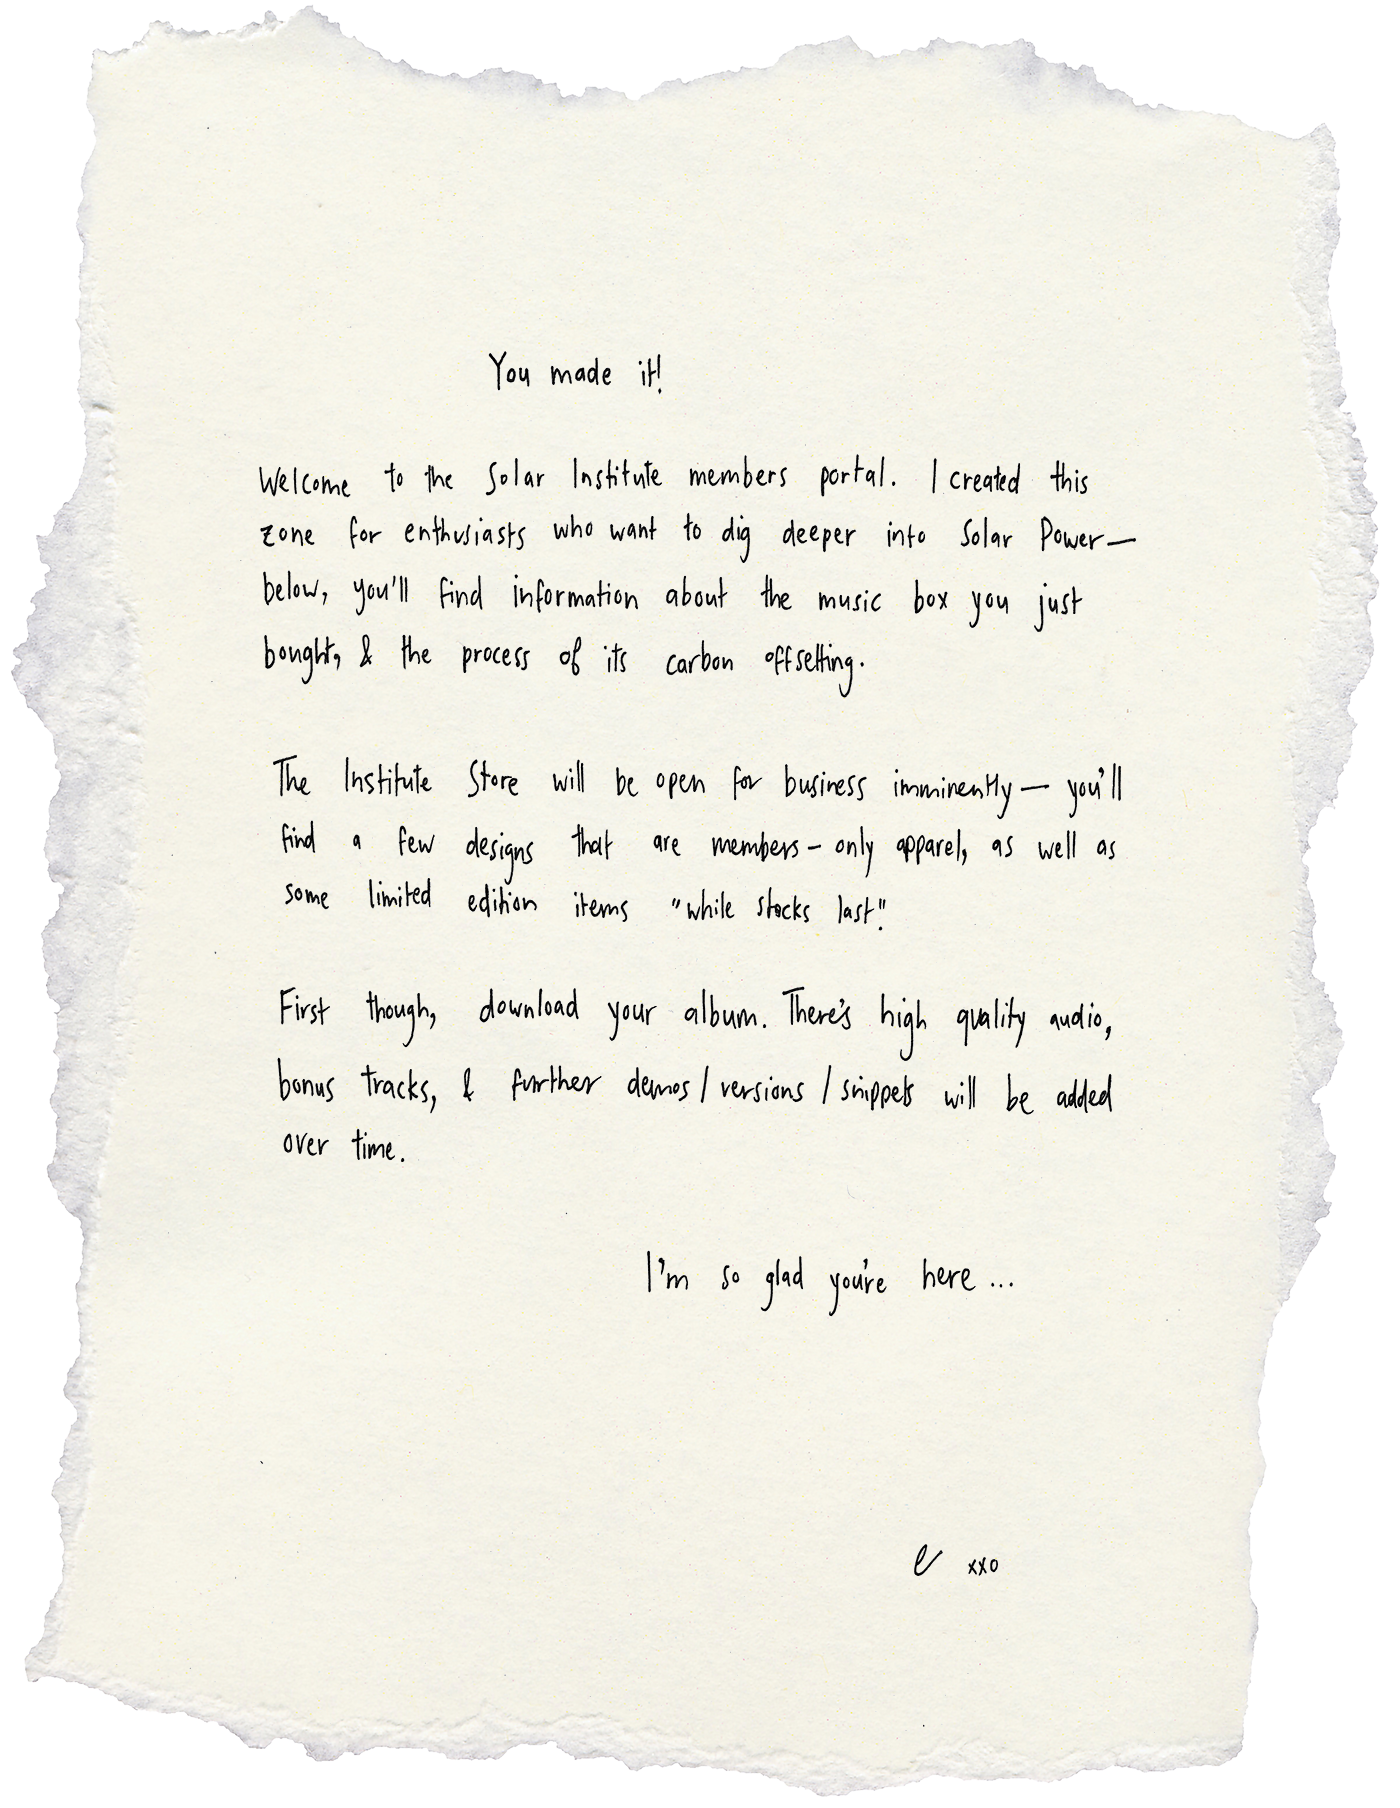 You made it!
Welcome to the Solar Institute members portal. I created this
zone for enthusiasts who want to dig deeper into Solar Power—
below, you'll find information about the music box you just
bought, & the process of its carbon offsetting.
The Institute Store will be open for business imminently — you'll
find a few designs that are members-only apparel, as well as
some limited edition items "while stocks last".
First though, download your album. There's high quality audio,
bonus tracks, & further demos / versions / snippets will be added
over time.
I'm so glad you're here ...
e xxo